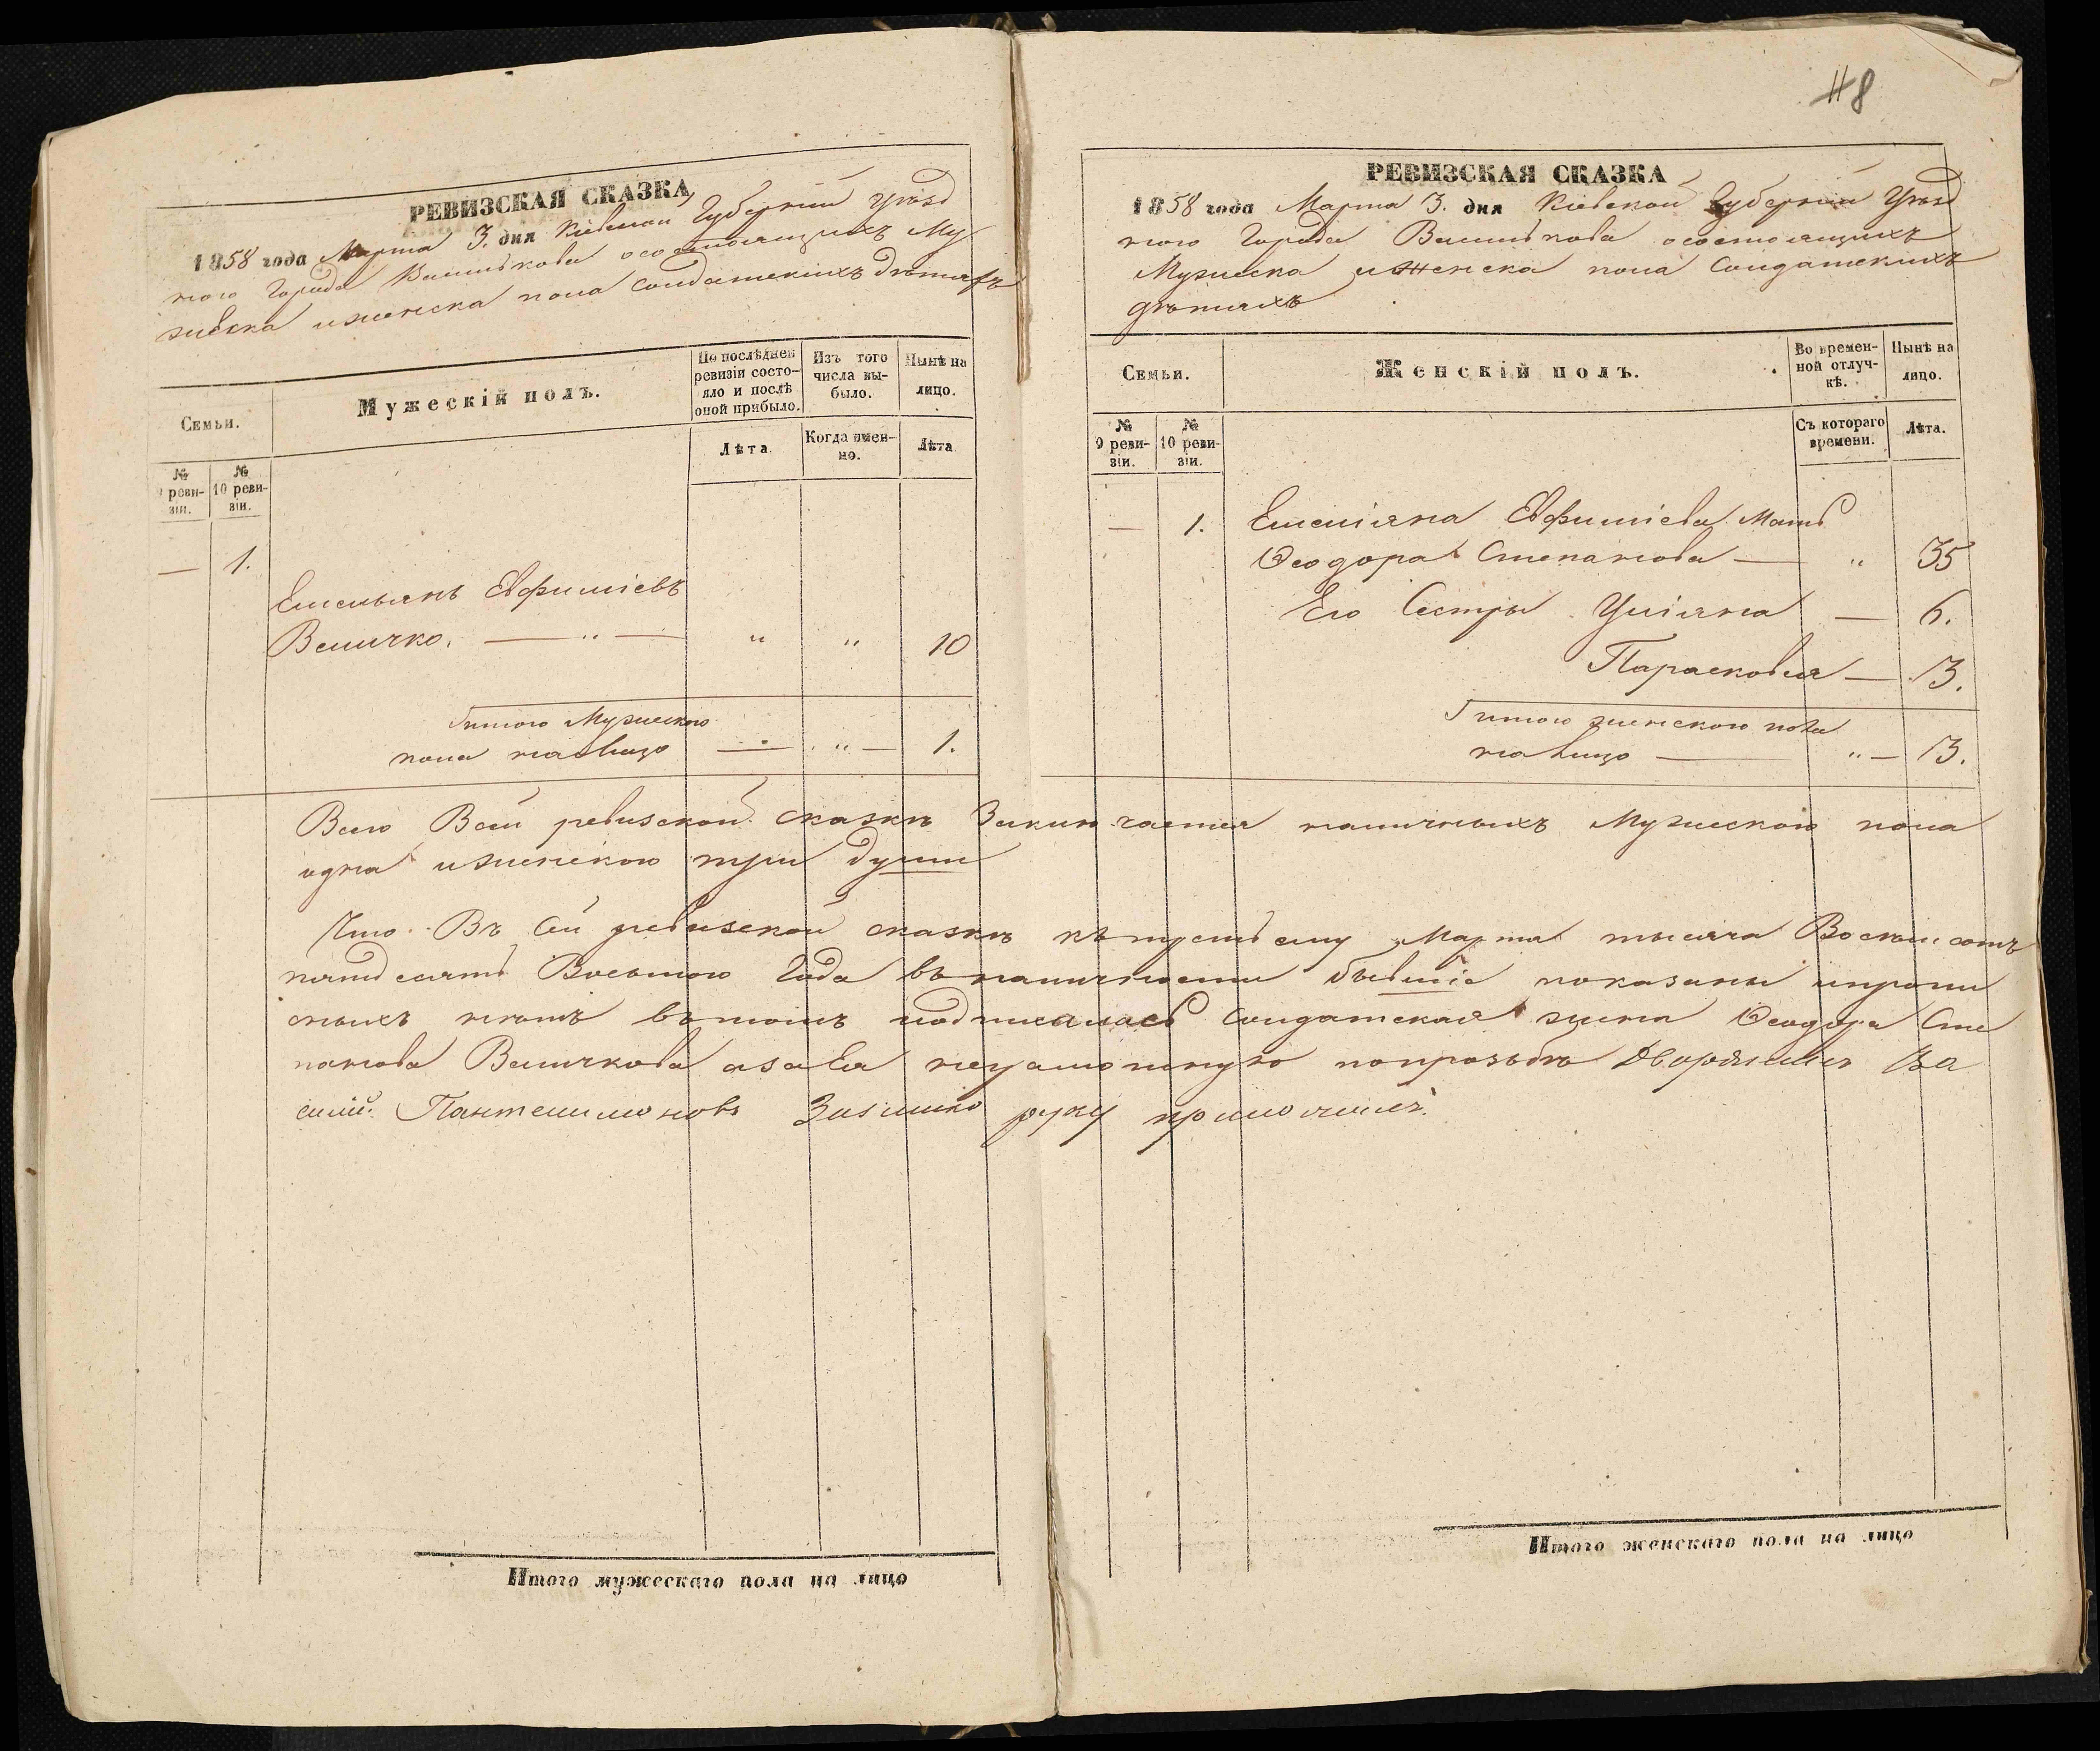 РЕВИЗСКАЯ СКАЗКА
1858 года Марта 3. дня Кіевской Губерніи Уѣзд
ного Города Василькова о состоящихъ Му
жеска и женска пола Солдатскихъ дѣтяхъ
Семьи.
Мужескій полъ.
По послѣдней ревизіи состо-
яло и послѣ оной прибыло.
Изъ того числа вы-
было.
Нынѣ на лицо.
№ 9 реви-
зіи.
№ 10 реви-
зіи.
Лѣта.
Когда имен-
но.
Лѣта
— 1.
Емельянъ Евфиміевъ
Величко. — " — " " 10
Итого Мужеского
пола на лицо — " — 1.
118
РЕВИЗСКАЯ СКАЗКА
1858 года Марта 3. дня Кіевской Губерніи Уѣзд
ного Города Василькова о состоящихъ
Мужеска и женска пола Солдатскихъ
дѣтяхъ
Семьи.
Женскій полъ.
Во времен-
ной отлуч-
кѣ.
Нынѣ на лицо.
№ 9 реви-
зіи.
№ 10 реви-
зіи.
Съ котораго времени.
Лѣта.
— 1. Емеліяна Евфиміева Мать
Ѳеодора Степанова — " 35
Его Сестры Уліяна — 6.
Парасковія — 13.
Итого женского пола
на лицо — " — 3.
Всего В сей ревизской сказкѣ Заключается наличныхъ Мужеского пола
одна и женского три души
Что Въ сей ревизской сказкѣ къ третьему Марта тысяча Восемь сотъ
пятдесятъ Восьмого Года въ наличности бывшіе показаны и пропи
сныхъ нѣтъ въ томъ подписалась Солдатская жена Ѳеодора Сте
панова Величкова а за Ея неграмотную по прозьбѣ Дворянинъ Ва
силій Пантелимоновъ руку приложилъ.
Итого мужескаго пола на лицо
Итого женскаго пола на лицо